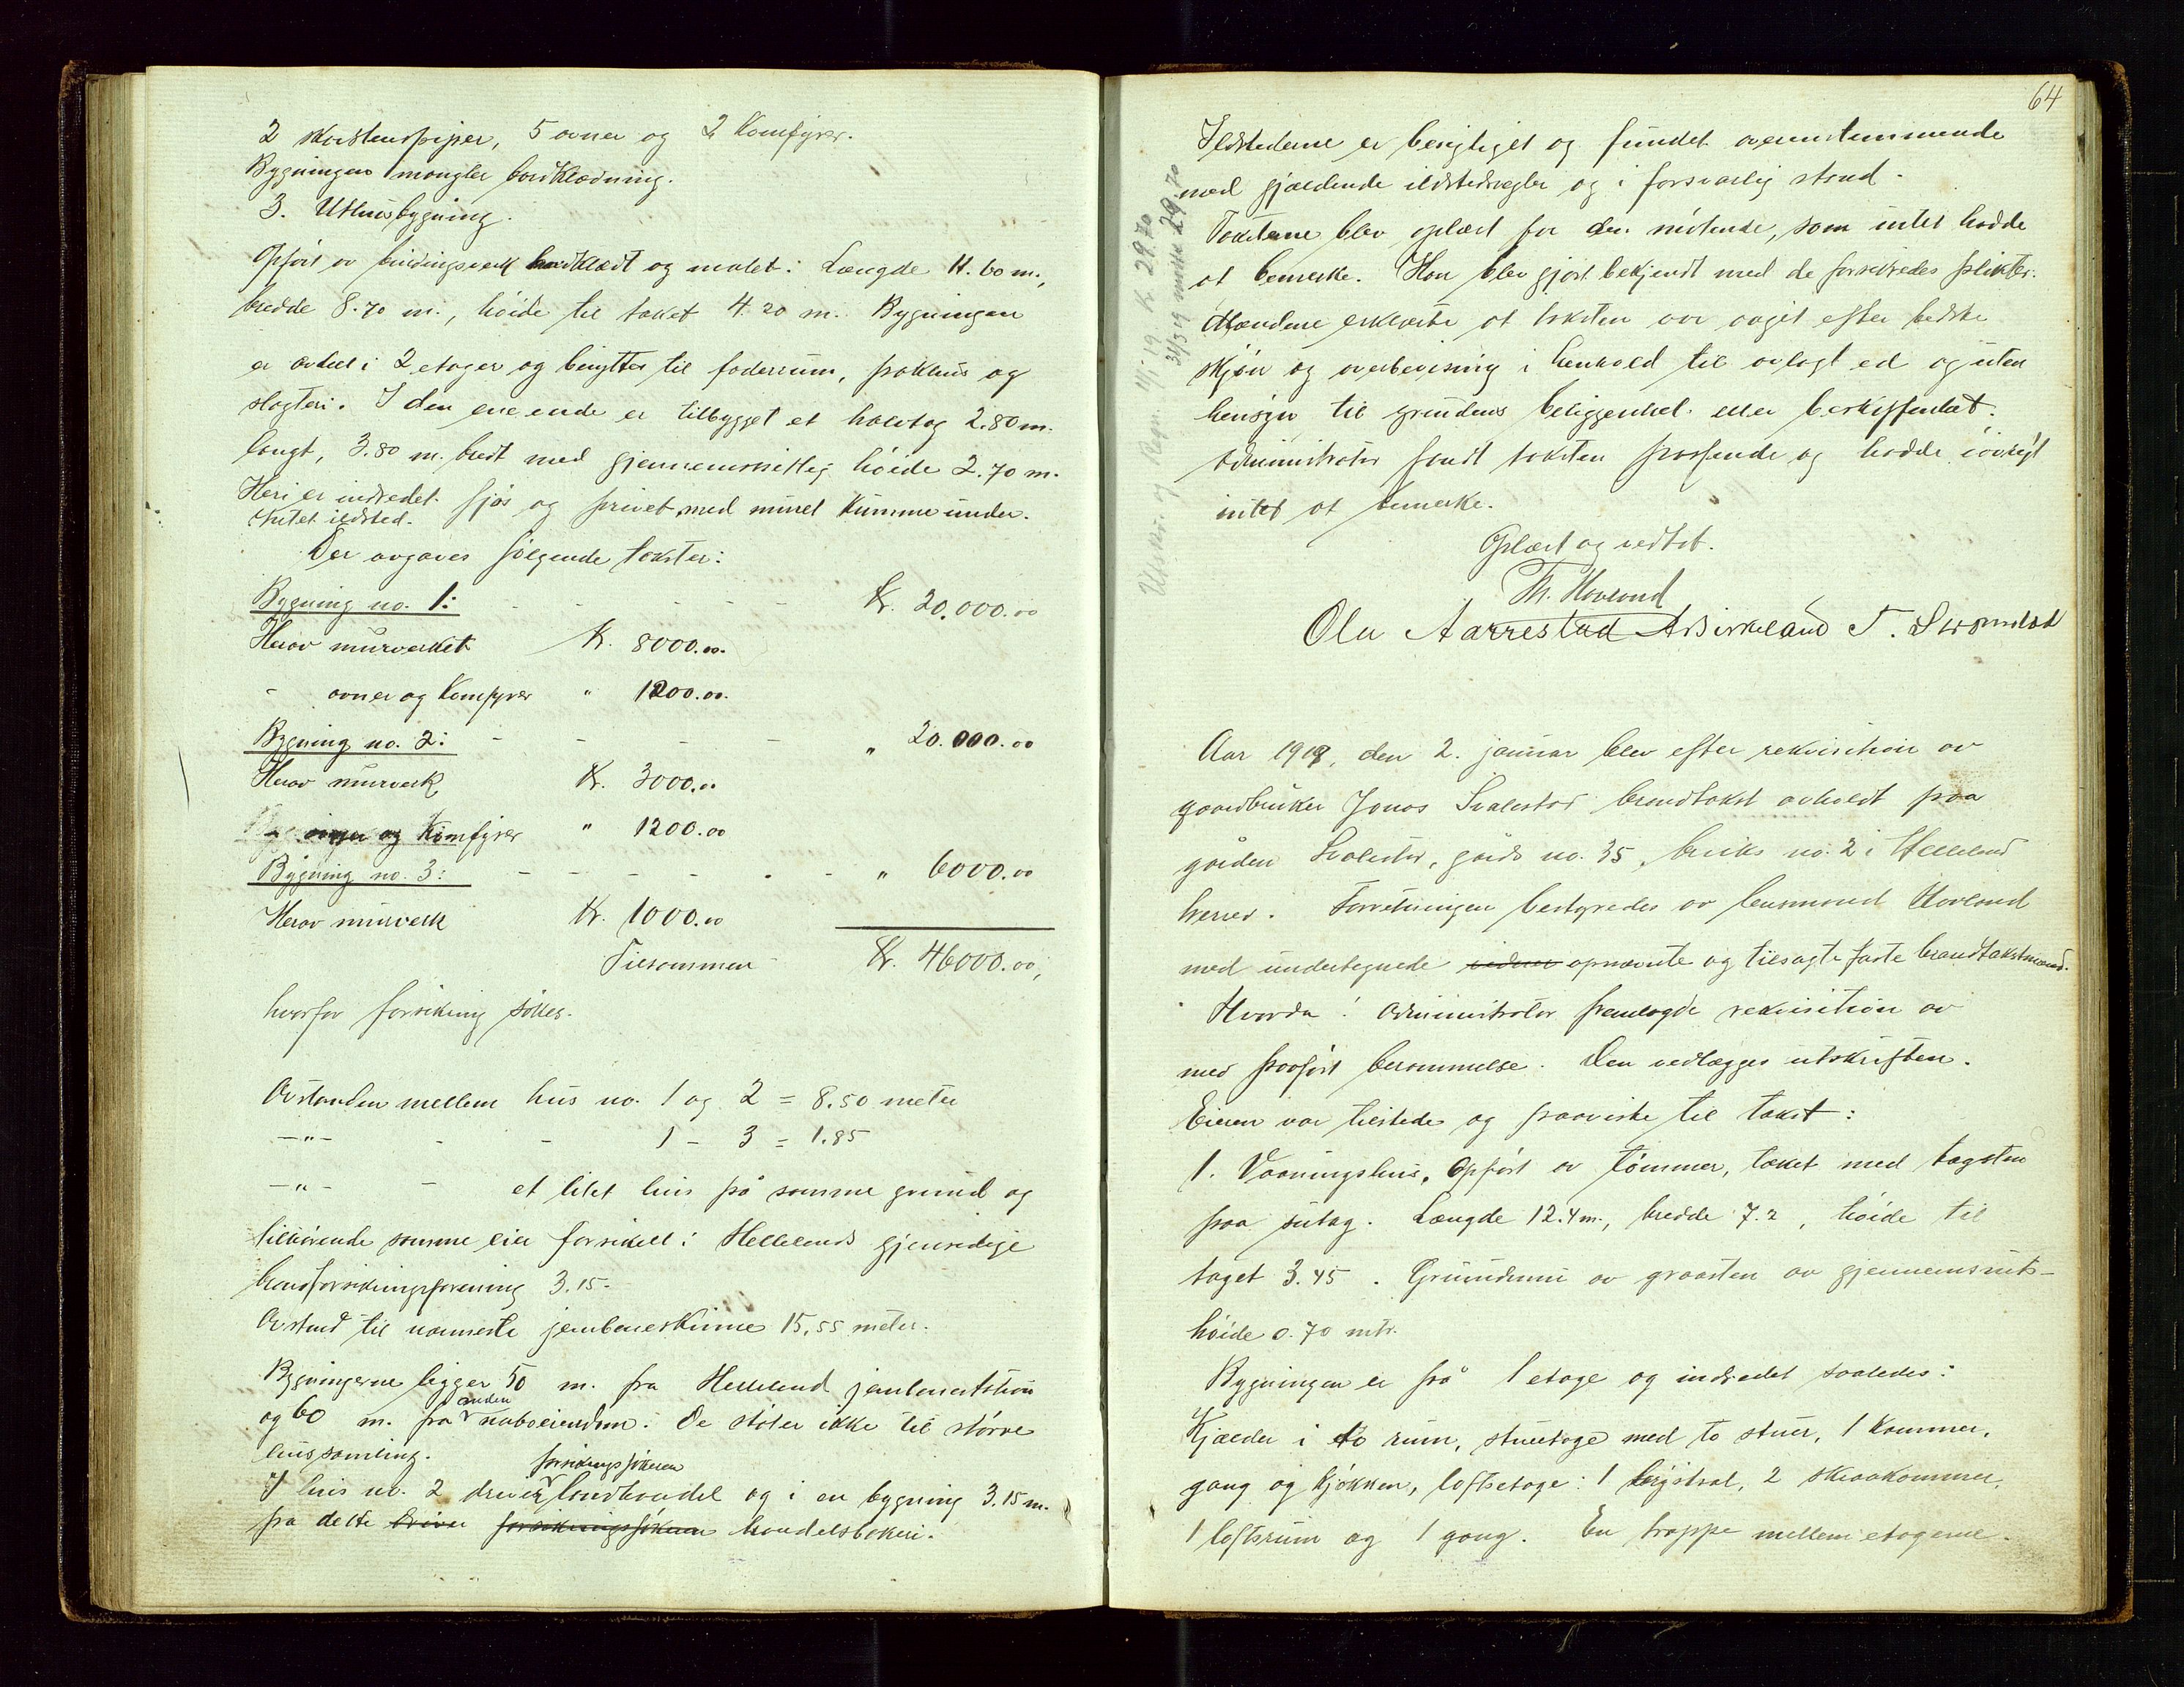 2 skorstenspiper, 5 ovner og 2 Komfyrer.
Bygningen mangler bordklædning.
3. Uthusbygning.
Opført av bindingsverk bordklædt og malet: Længde 11.60 m.,
bredde 8.70 m., höide til taket 4.20 m. Bygningen
er avdelt i 2 etager og benyttes til foderrum, pakhus og
slagteri. I den ene ende er tilbygget et halvtag 2.80 m.
langt, 3.80 m. bredt med gjennemsnitlig höide 2.70 m.
Heri er indredet fjøs og privet med muret kumme under.
Intet ildsted.
Der avgaves følgende takster:
Bygning no. 1: - - - - - Kr. 20.000.00
Herav murverket Kr. 8000.00.
- ovner og komfyrer " 1200.00.
Bygning no. 2: - - - - " 20.000.00
Herav murverk Kr. 3000.00
- ovner og Komfyrer " 1200.00
Bygning no. 3: - - - - - - " 6000.00
Herav murverk Kr. 1000.00
Tilsammen Kr. 46000.00,
hvorfor forsikring søkes.
Avstanden mellem hus no. 1 og 2 = 8.50 meter
-"- - - 1 - 3 = 1.85
-"- - et litet hus på samme grund og
tilhørende samme eier forsikret i Hellelands gjensidige
brandforsikringsforening 3.15-
Avstand til nærmeste jernbaneskinne 15,55 meter.
Bygningerne ligger 50 m. fra Helleland jernbanestation
og 60 m. fra anden naboeiendom. De støter ikke til större
hussamling.
I hus no. 2 driver forsikringssøkeren landhandel og i en bygning 3.15 m.
fra dette driver forsikringssøkeren handelsbakeri.
64
Ildstederne er besigtiget og fundet overenstemmende
med gjældende ildstedsregler og i forsvarlig stand.
Taksterne blev oplæst for den møtende, som intet hadde
at bemerke. Han blev gjort bekjendt med de forsikredes plikter.
Mændene erklærte at taksten var avgit efter bedste
skjön og overbevisning i henhold til avlagt ed og uten
hensyn til grundens beliggenhet eller beskaffenhet.
Administrator fandt taksten passende og hadde iövrigt
intet at bemerke.
Oplæst og vedtat.
Th. Hovland
Ola Aarrestad A Birkeland T.
31/3 19 mottat 29.70
Utskr. 19 K. 29.70
Aar 1919, den 2. januar blev efter rekvisition av
gaardbruker Jonas Svalestad brandtakst avholdt paa
gården Svalestad, gårds no. 35, bruks no. 2 i Helleland
herred. Forretningen bestyredes av lensmand Hovland
med undertegnede opnævnte og tilsagte faste brandtakstmænd.
Hvorda: Administrator fremlagde rekvisition av
med paaført berammelse. Den vedlægges utskriften.
Eieren var tilstede og paaviste til takst:
1. Vaaningshus, Opført av tömmer, tækt med tagsten
paa sutag. Længde 12.4 m., bredde 7.2, höide til
taget 3.45. Grundmur av graasten av gjennemsnits-
höide 0.70 mtr.
Bygningen er på 1 etage og indredet saaledes:
Kjælder i to rum, stuetage med to stuer, 1 kammer,
gang og kjøkken, loftsetage: 1 2 skraakammer,
1 loftsrum og 1 gang. En trappe mellem etagerne.